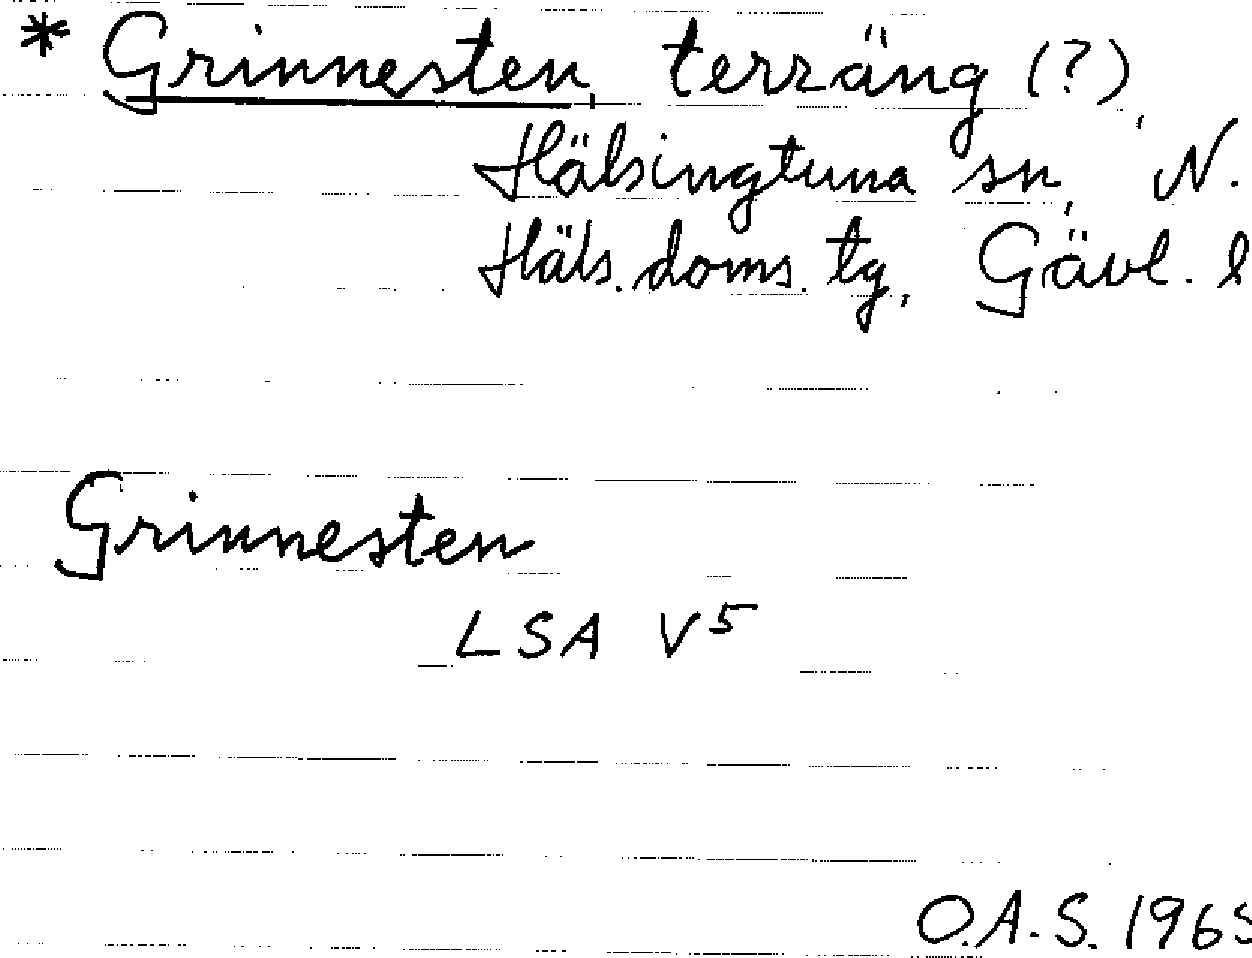 * Grinnesten, terräng (?),
Hälsingtuna sn, N.
Häls. doms. tg, Gävl. l
Grinnesten
LSA V5
O.A.S. 1965